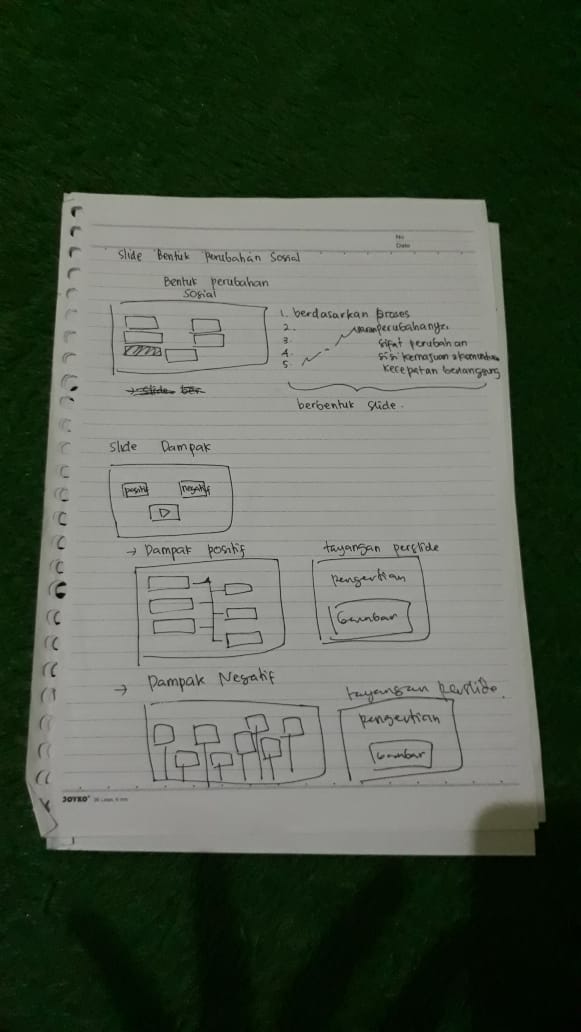 No
Date
Slide Bentuk Perubahan Sosial
Bentuk perubahan
Sosial
1. berdasarkan proses
2. perubahanya.
3. sifat perubahan
4. sisi kemajuan & kemunduran
5. kecepatan berlangsung
berbentuk slide.
Slide Dampak
positif negatif
→ Dampak positif
tayangan perslide
pengertian
Gambar
→ Dampak Negatif
tayangan perslide.
pengertian
Gambar
JOYKO